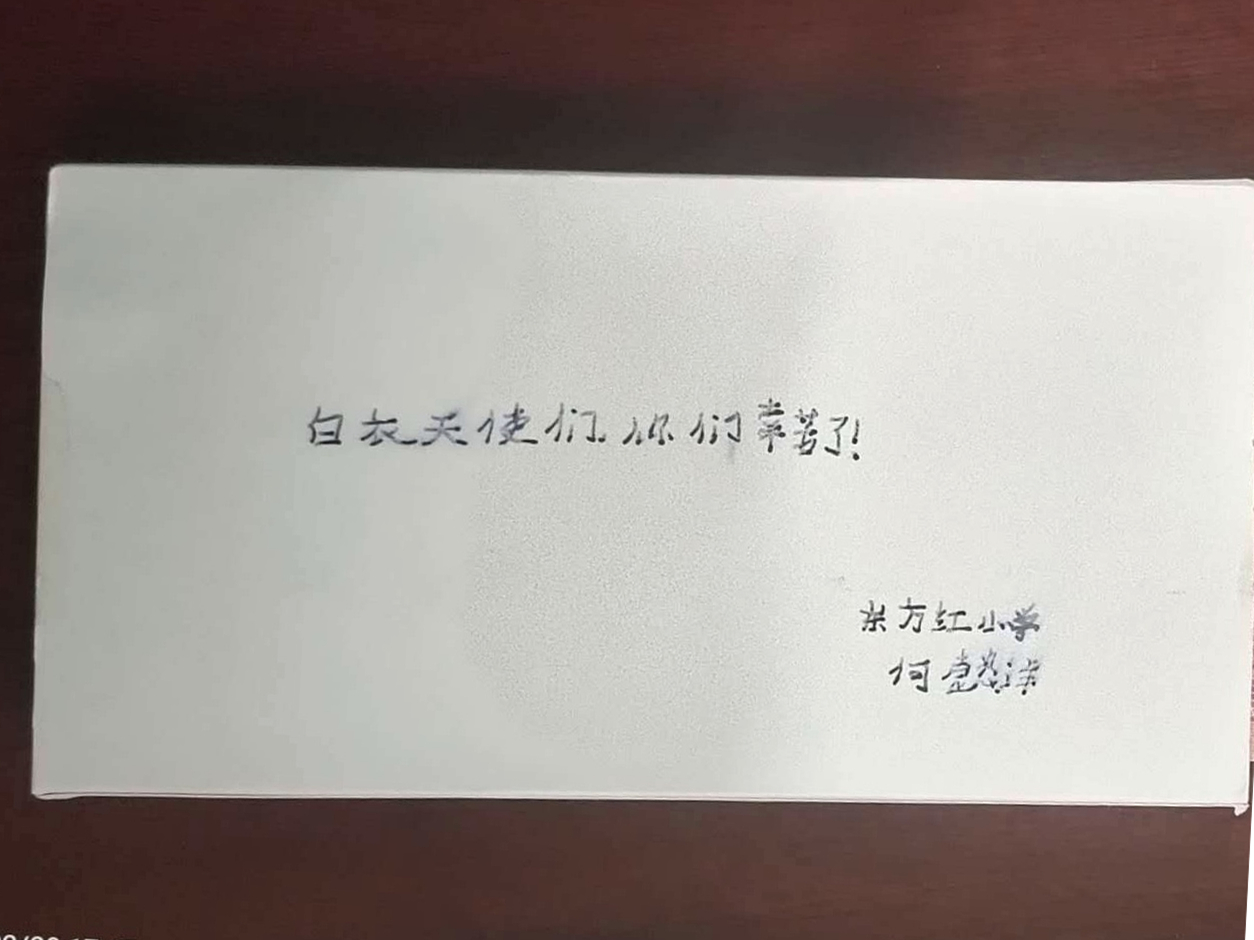 白衣天使们,你们辛苦了!
东方红小学
何